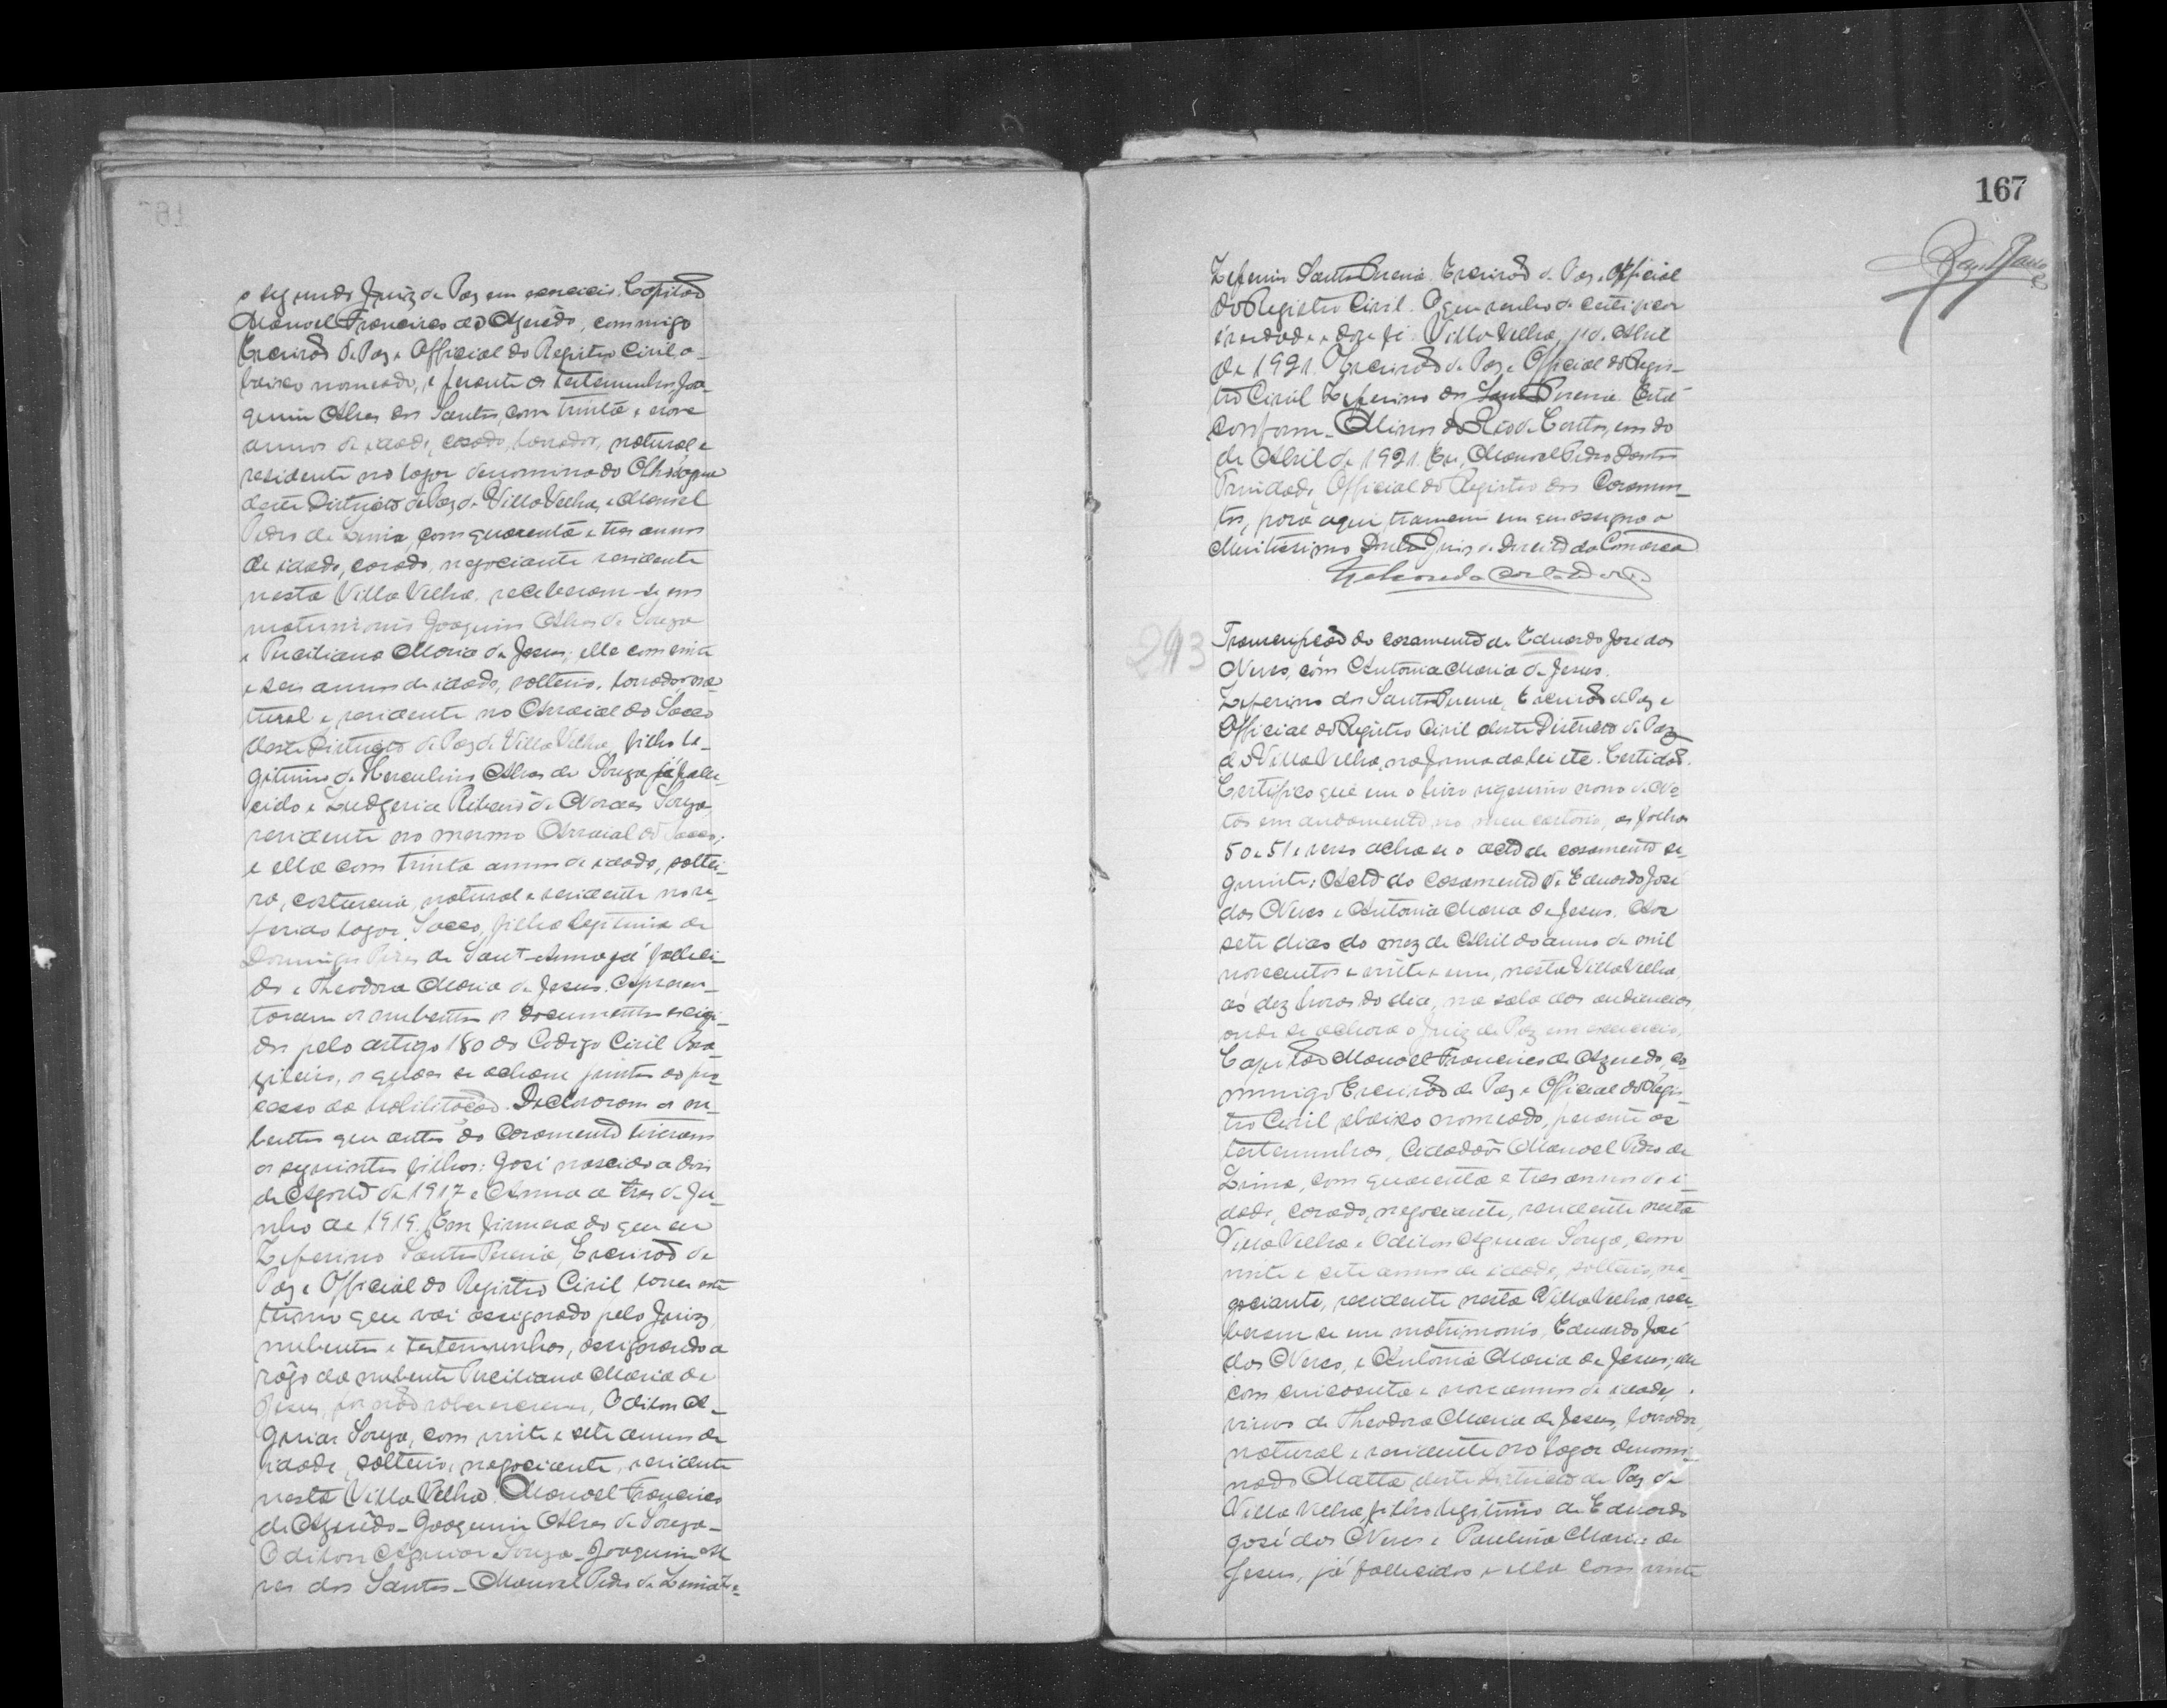 o segundo Juiz de Paz em exercicio, Capitão
Manoel Francisco de Azevêdo, commigo
Escrivão de Paz e Official do Registro Civil a-
baixo nomeado, e perante as testemunhas Joa-
quim Alves dos Santos, com trinta e nove
annos de idade, casado, lavrador, natural e
residente no logar denominado Olhodagua
deste Districto de Paz de Villa Velha, e Manoel
Pedro de Lima, com quarenta e tres annos
de idade, casado, negociante residente
nesta Villa Velha, receberam-se em
matrimonio Joaquim Alves de Souza
e Purciliana Maria de Jesus; elle com vinte
e seis annos de idade, solteiro, lavrador, na-
tural e residente no Arraial do Sacco
deste Districto de Paz de Villa Velha, filho le-
gitimo de Herculino Alves de Souza já falle-
cido e Ludgeria Ribeiro de Novaes Souza
residente no mesmo Arraial do Sacco;
e ella com trinta annos de idade, soltei-
ra, costureira, natural e residente no re-
ferido logar Sacco, filha legitima de
Domingos Pires de Sant-Anna já falleci-
do e Theodora Maria de Jesus. Apresen-
taram os nubentes os documentos exigi-
dos pelo artigo 180 do Codigo Civil Bra-
zileiro, os quaes se acham juntos ao pro-
cesso da habilitação. Declararam os nu-
bentes que antes do casamento tiveram
os seguintes filhos: José nascido a dois
de Agosto de 1917 e Anna a tres de Ju-
nho de 1919. Em firmeza do que eu
Zeferino Santos Pereira, Escrivão de
Paz e Official do Registro Civil lavrei este
termo que vai assignado pelo Juiz,
nubentes e testemunhas, assignando a
rôgo da nubente Purciliana Maria de
Jesus, por não saber escrever, Odilon A-
guiar Souza, com vinte e sete annos de
idade, solteiro, negociante, residente
nesta Villa Velha. Manoel Francisco
de Azevêdo - Joaquim Alves de Souza -
Odilon Aguiar Souza - Joaquim Al-
ves dos Santos - Manoel Pedro de Lima
167
Zeferino Santos Pereira. Escrivão de Paz e Official
do Registro Civil. O que venho de certificar
é verdade e dou fé. Villa Velha, de Abril
de 1921. O Escrivão de Paz e Official do Regis-
tro Civil Zeferino dos Santos Pereira. Está
conforme. Minas do Rio de Contas, em do
de Abril de 1921. Eu, Manoel Pedro Dantas
Trindade, Official do Registro dos Casamen-
tos, para aqui transcrevi em que assigna o
Meritissimo Doutor Juiz de Direito da Comarca
293
Transcripção do casamento de Eduardo José dos
Neves, com Antonia Maria de Jesus.
Zeferino dos Santos Pereira, Escrivão de Paz e
Official do Registro Civil deste Districto de Paz
de Villa Velha, na forma da lei etc. Certidão.
Certifico que em o livro vigesimo nono de No-
tas em andamento, no meu cartorio, as folhas
50 e 51 e verso acha-se o acto de casamento se-
guinte: Acto do casamento de Eduardo José
dos Neves e Antonia Maria de Jesus. Aos
sete dias do mez de Abril do anno de mil
novecentos e vinte e um, nesta Villa Velha,
ás dez horas do dia, na sala das audiencias,
onde se achava o Juiz de Paz em exercicio,
Capitão Manoel Francisco de Azevedo, co-
mmigo Escrivão de Paz e Official do Regis-
tro Civil abaixo nomeado, perante as
testemunhas, Cidadãos Manoel Pedro de
Lima, com quarenta e tres annos de i-
dade, casado, negociante, residente nesta
Villa Velha e Odilon Aguiar Souza, com
vinte e sete annos de idade, solteiro, ne-
gociante, residente nesta Villa Velha, rece-
beram-se em matrimonio, Eduardo José
dos Neves, e Antonia Maria de Jesus; elle
com cincoenta e nove annos de idade,
viuvo de Theodora Maria de Jesus, lavrador,
natural e residente no logar denomi-
nado Matta deste Districto de Paz de
Villa Velha, filho legitimo de Eduardo
José dos Neves e Paulina Maria de
Jesus, já fallecidos e ella com vinte